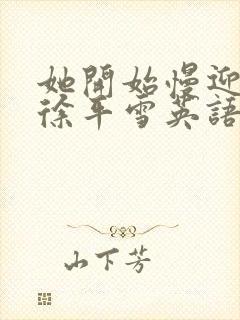 她開始慢迎
徐平雪英語
山下芳